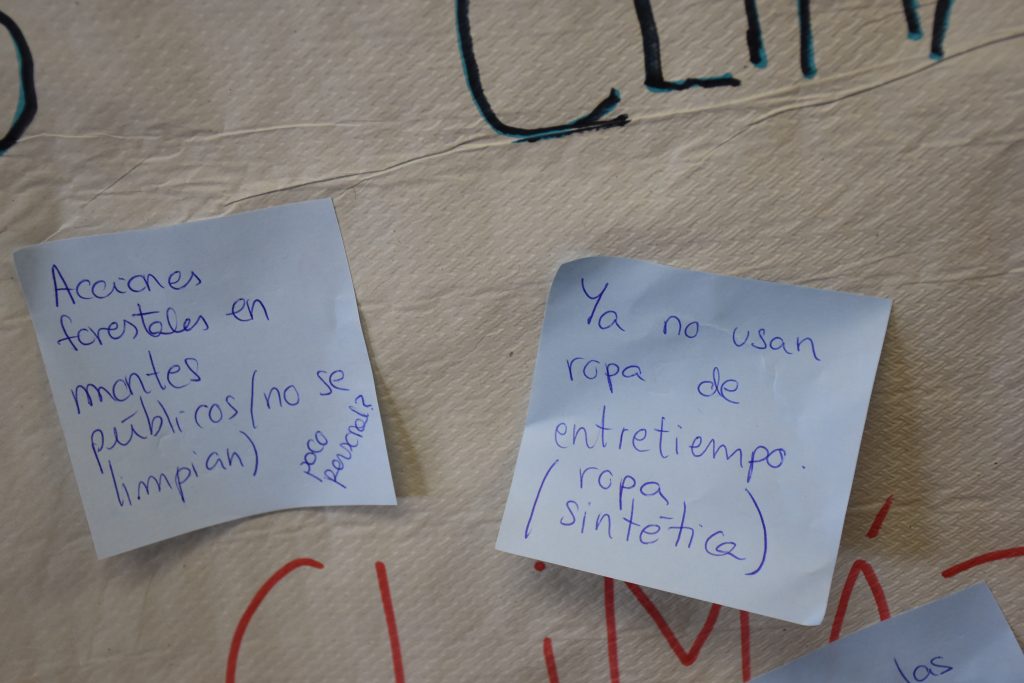 CLIM
Acciones
forestales en
montes
públicos/no se
limpian)
poco
personal?
Ya no usan
ropa de
entretiempo.
(ropa
sintética)
CLIMÁ
las